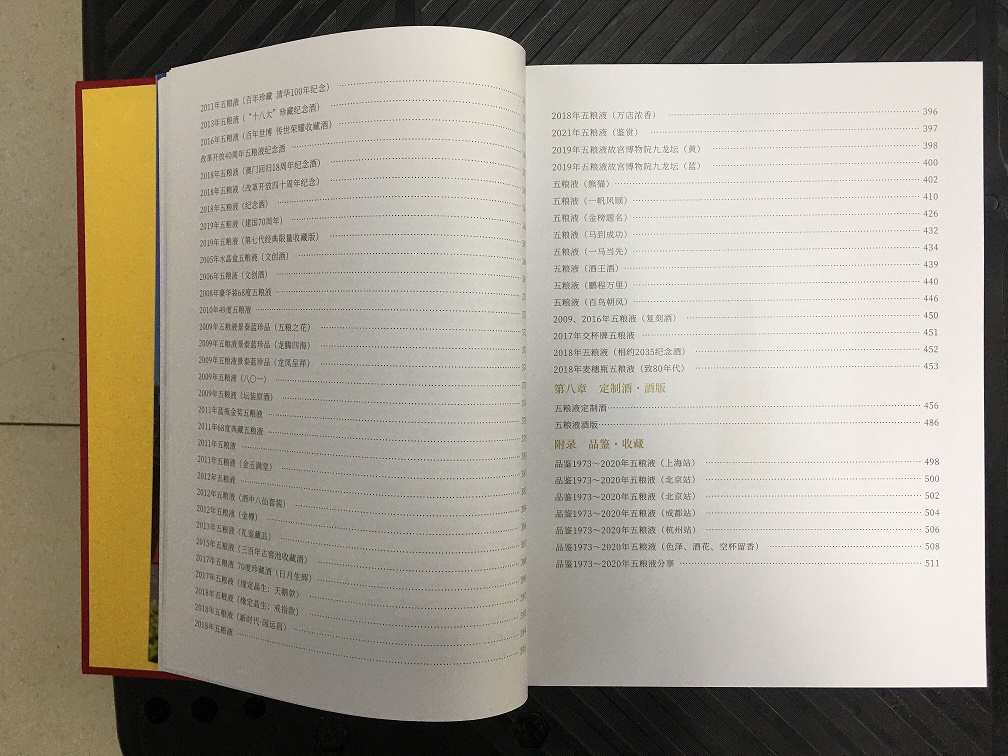 2011年五粮液（百年珍藏 清华100年纪念）
2013年五粮液（“十八大”珍藏纪念酒）
2016年五粮液（百年世博 传世荣耀收藏酒）
改革开放40周年五粮液纪念酒
2018年五粮液（澳门回归18周年纪念酒）
2018年五粮液（改革开放四十周年纪念）
2018年五粮液（纪念酒）
2019年五粮液（建国70周年）
2019年五粮液（第七代经典限量收藏版）
2005年水晶盒五粮液（文创酒）
2006年五粮液（文创酒）
2008年豪华装68度五粮液
2010年49度五粮液
2009年五粮液景泰蓝珍品（五粮之花）
2009年五粮液景泰蓝珍品（龙腾四海）
2009年五粮液景泰蓝珍品（龙凤呈祥）
2009年五粮液（八〇一）
2009年五粮液（坛装原酒）
2011年蓝瓶金奖五粮液
2011年68度典藏五粮液
2011年五粮液
2011年五粮液（金玉满堂）
2012年五粮液
2012年五粮液（酒中八仙套装）
2012年五粮液（金樽）
2013年五粮液（礼鉴藏品）
2015年五粮液（三百年古窖池收藏酒）
2017年五粮液 70度珍藏酒（日月生辉）
2017年五粮液（缘定晶生：天鹅款）
2018年五粮液（缘定晶生：戒指款）
2018年五粮液（新时代·国运昌）
2018年五粮液
2018年五粮液（万店浓香） 396
2021年五粮液（鉴赏） 397
2019年五粮液故宫博物院九龙坛（黄） 398
2019年五粮液故宫博物院九龙坛（蓝） 400
五粮液（熊猫） 402
五粮液（一帆风顺） 410
五粮液（金榜题名） 426
五粮液（马到成功） 432
五粮液（一马当先） 434
五粮液（酒王酒） 439
五粮液（鹏程万里） 440
五粮液（百鸟朝凤） 446
2009、2016年五粮液（复刻酒） 450
2017年交杯牌五粮液 451
2018年五粮液（相约2035纪念酒） 452
2018年麦穗瓶五粮液（致80年代） 453
第八章 定制酒·酒版
五粮液定制酒 456
五粮液酒版 486
附录 品鉴·收藏
品鉴1973～2020年五粮液（上海站） 498
品鉴1973～2020年五粮液（北京站） 500
品鉴1973～2020年五粮液（北京站） 502
品鉴1973～2020年五粮液（成都站） 504
品鉴1973～2020年五粮液（杭州站） 506
品鉴1973～2020年五粮液（色泽、酒花、空杯留香） 508
品鉴1973～2020年五粮液分享 511